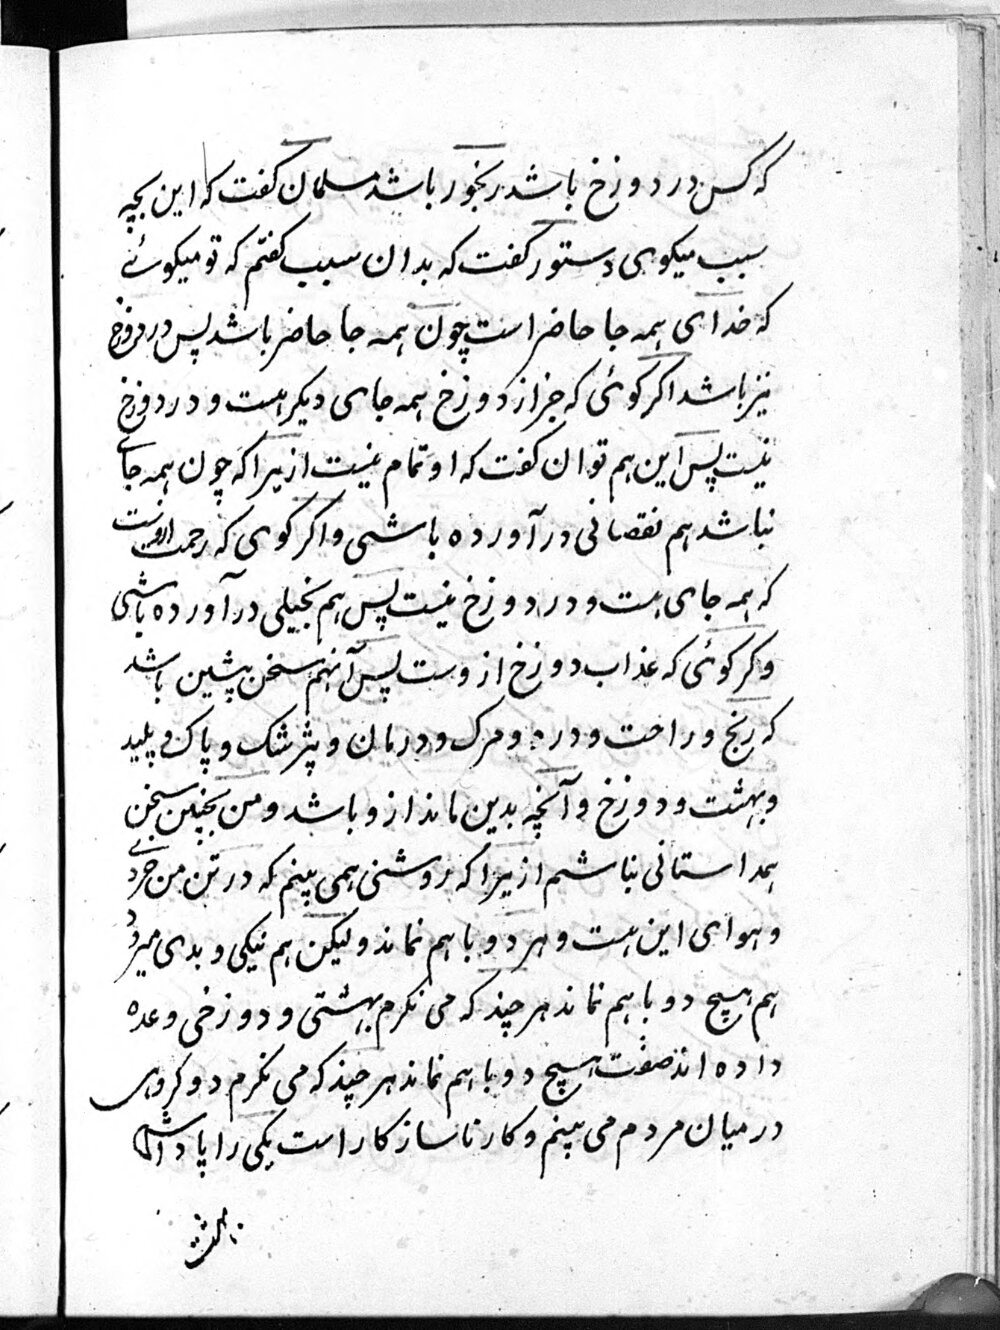 که کس در دوزخ باشد رنجور باشد مسلمان کفت که این بچه
سبب میکوی دستور کفت که بدان سبب کفتم که تو میکوئے
که خدای همه جا حاضر است چون همه جا حاضر باشد پس در دوزخ
نیز باشد اکر کوئی که جز از دوزخ همه جای دیکر هست و در دوزخ
نیست پس این هم توان کفت که او تمام نیست ازیرا که چون همه جاے
نباشد هم نقصانی در آورده باشی و اکر کوی که رحمت اوست
که همه جای هست و در دوزخ نیست پس هم بخیلی در آورده باشی
وکر کوئی که عذاب دوزخ ازوست پس آنهم سخن پیشین باشد
که رنج و راحت و درد و مرک و درمان و پزشک و پاک و پلید
و بهشت و دوزخ و آنچه بدین ماند ازو باشد و من بچنین سخن
همداستانی نباشم ازیرا که بروشنی همی بینم که در تن من خردے
و هوای این هست و هر دو باهم نماند و لیکن هم نیکی و بدی میرد
هم هیچ دو باهم نماند هر چند که می نکرم بهشتی و دوزخی وعده
داده اند صفت هیچ دو باهم نماند هر چند که می نکرم دو کروهی
در میان مردم می بینم و کار ناسازکار است یکی را پاداش